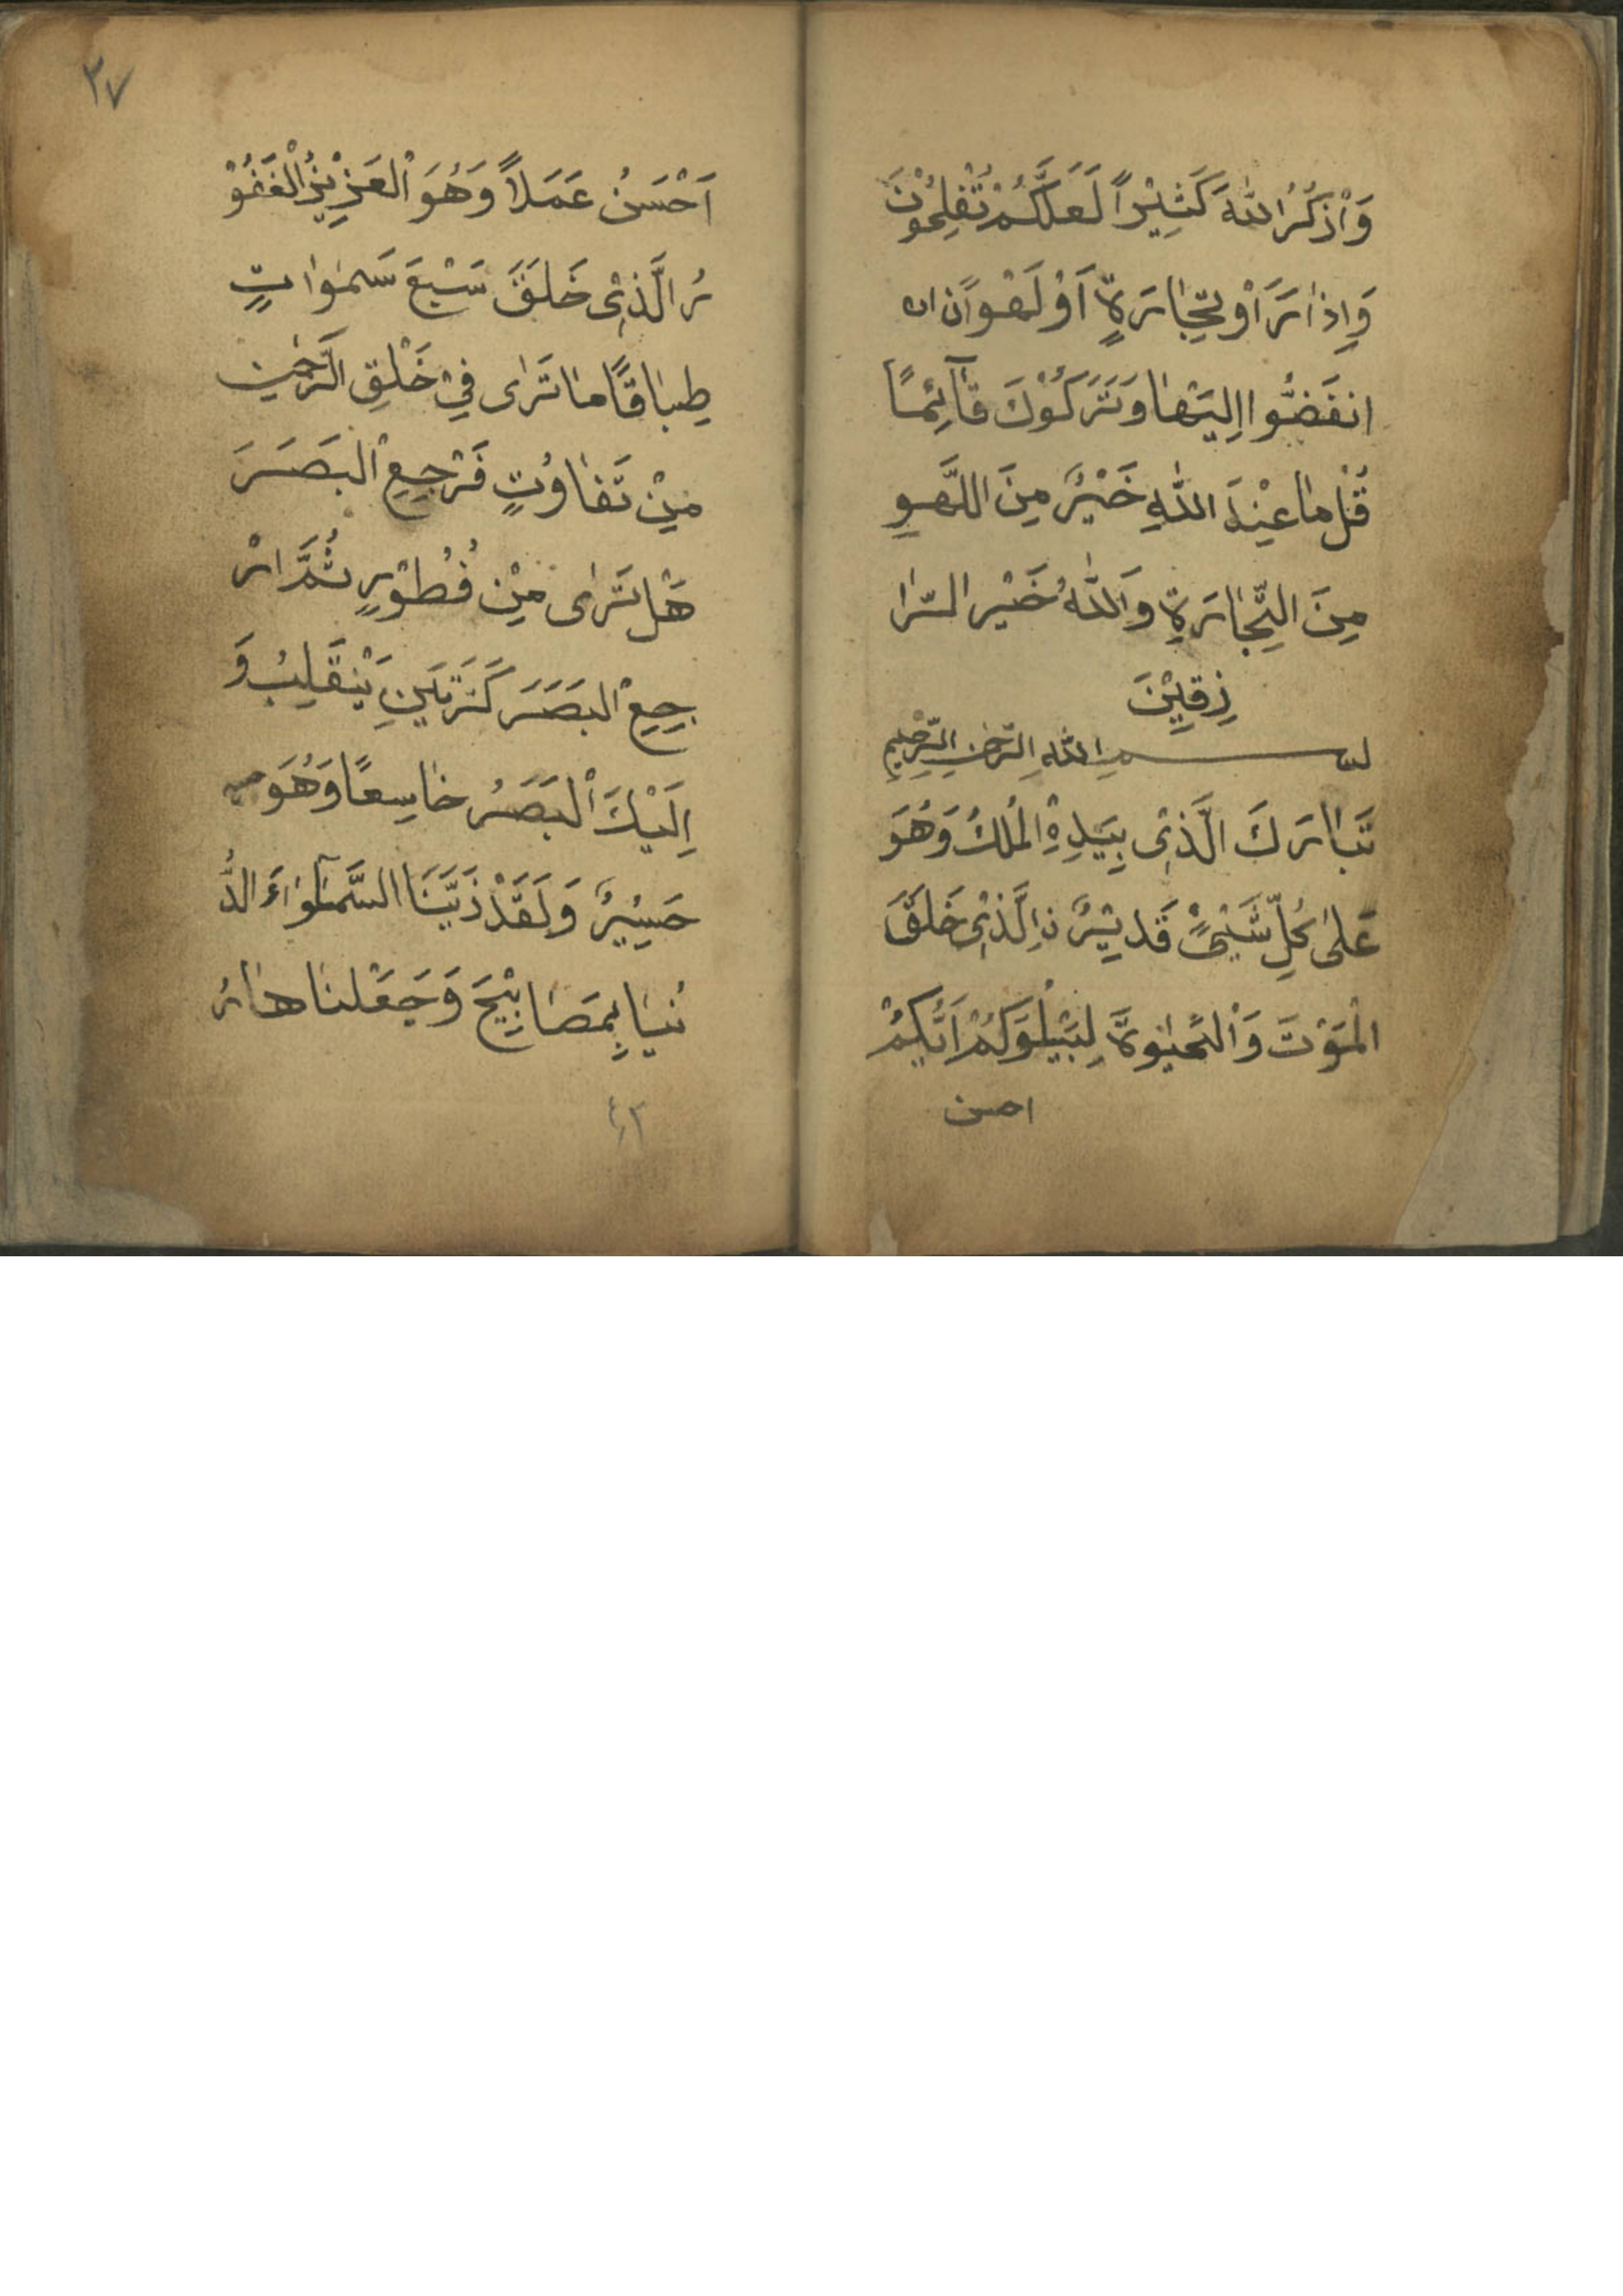 وَاْذكُرُ اللّٰهَ كَثِيْراً لَعَلَّكُمْ تُفْلِحُوْنَ
وَاِذاٰ رَاَوْ تِجٰارَةٍ اَوْ لَهْواًنِ ان
انفَضُّوا اِليَهٰا وَتَرَكُوْكَ قٰآئِمًا
قُلْ مٰا عِنْدَ اللّٰهِ خَيْرٌ مِنَ اللَّهوِ
مِنَ التِّجٰارَةِ وَاَللّٰهُ خَيْر الرّٰا
زِقيِْنَ
بسم اللّٰهِ الرَّحْمٰنِ الرَّحِيْمِ
تَبٰارَكَ الَّذىِْ بِيَدِهِ اْلمُلكُ وَهُوَ
عَلىٰ كُلِّ شَيْئٍ قَديْرٌ نِ الَّذىِْ خَلَقَ
الْمَوْتَ وَاْلحَيٰوةَ لِيَبْلُوَكُمْ اَيُّكُمْ
احسن
٣٧
اَحْسَنُ عَمَلاً وَهُوَ اْلعَزِيْزُ اْلغَفُوْ
رُ الَّذىِْ خَلَقَ سَبْعَ سَمٰوٰاتٍ
طِبٰاقًا مٰا تَرٰى فِيْ خَلْقِ الرَّحْمٰنِ
مِنْ تَفٰاوُتٍ فَرْجِعِ اْلبَصَرَ
هَلْ تَرٰى مِنْ فُطُوْرٍ ثُمَّ ارْ
جِعِ اْلبَصَرَ كَرَّتَيَنِ يَنْقَلِبُ وَ
اِلَيْكَ اْلبَصَرُ خٰاسِعًا وَهُوَ
حَسِيْرٌ وَلَقَدْ ذَيَّنَا السَّمٰوٰآءَ الدُّ
نْيٰا بِمَصٰابِيْحَ وَجَعَلنٰا هٰا رُ